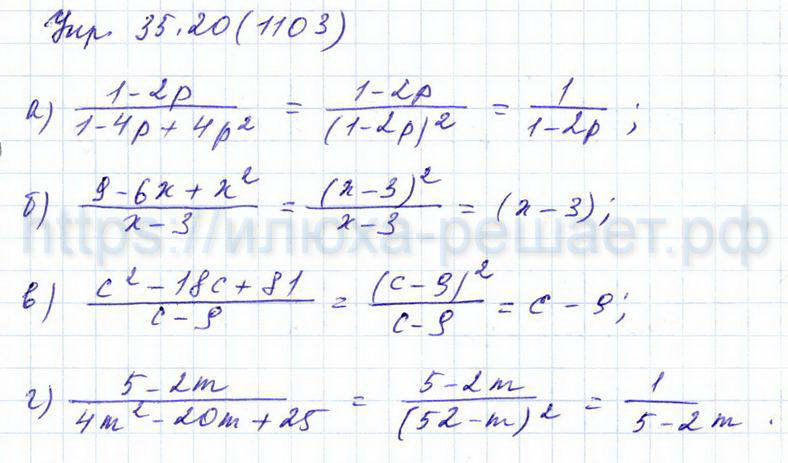 Упр. 35.20(1103)
а) (1-2p)/(1-4p+4p²) = (1-2p)/(1-2p)² = 1/(1-2p);
б) (9-6x+x²)/(x-3) = (x-3)²/(x-3) = (x-3);
https://илюха-решает.рф
в) (c²-18c+81)/(c-9) = (c-9)²/(c-9) = c-9;
г) (5-2m)/(4m²-20m+25) = (5-2m)/(52-m)² = 1/(5-2m).